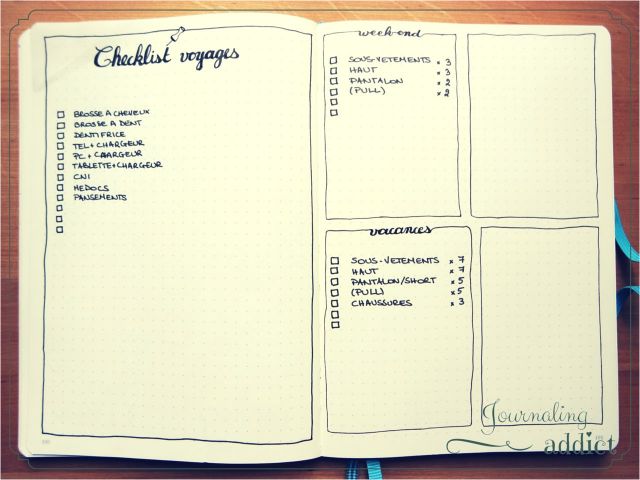 Checklist voyages
BROSSE A CHEVEUX
BROSSE A DENT
DENTIFRICE
TEL + CHARGEUR
PC + CHARGEUR
TABLETTE + CHARGEUR
CNI
MEDOCS
PANSEMENTS
week-end
SOUS-VETEMENTS x 3
HAUT x 3
PANTALON x 2
(PULL) x 2
vacances
SOUS-VETEMENTS x 7
HAUT x 7
PANTALON/SHORT x 5
(PULL) x 5
CHAUSSURES x 3
Journaling
addict